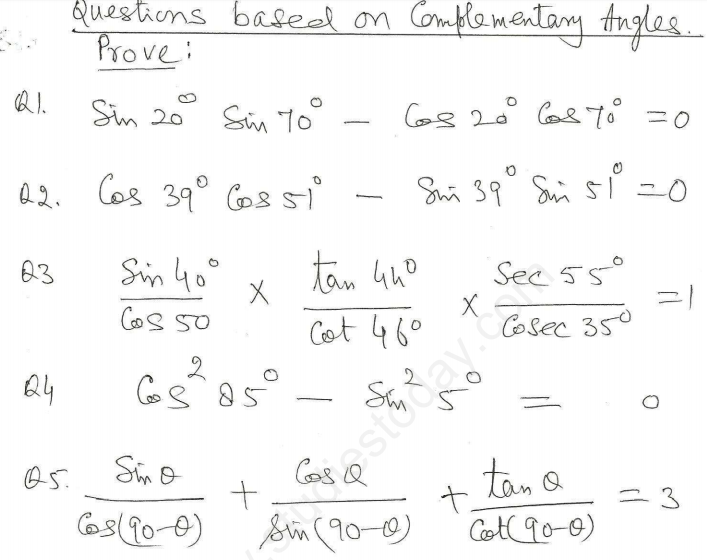 Questions based on Complementary Angles.
Prove:
Q1. Sin 20° Sin 70° – Cos 20° Cos 70° = 0
Q2. Cos 39° Cos 51° – Sin 39° Sin 51° = 0
Q3 Sin 40°/Cos 50 × tan 44°/Cot 46° × Sec 55°/Cosec 35° = 1
Q4 Cos² 85° – Sin² 5° = 0
Q5. Sin θ/Cos(90-θ) + Cos θ/Sin(90-θ) + tan θ/Cot(90-θ) = 3
studiestoday.com